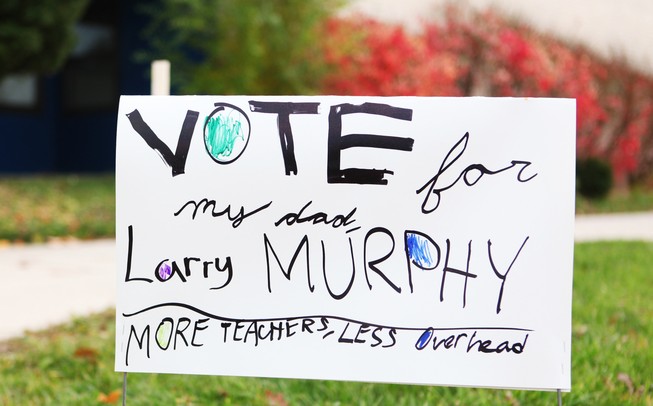 VOTE for
my dad,
Larry MURPHY
MORE TEACHERS, LESS Overhead